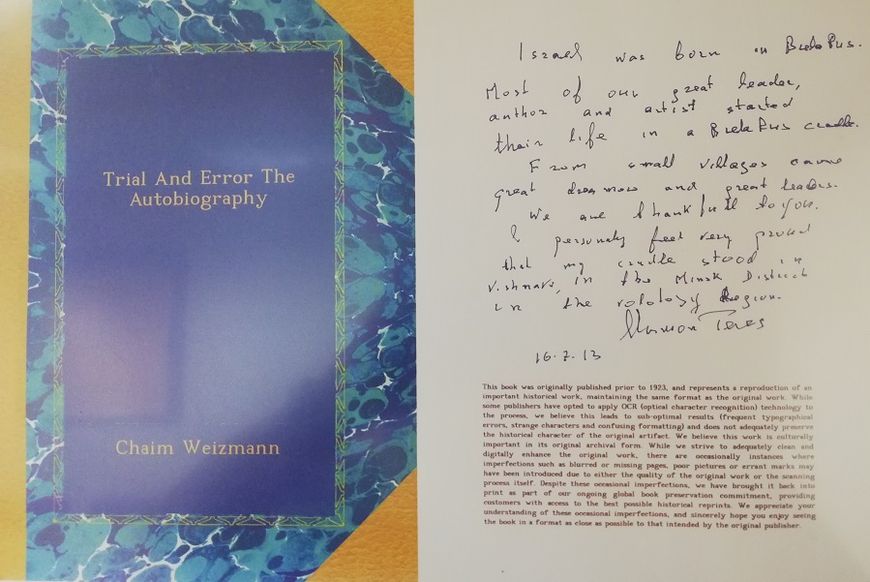 Trial And Error The
Autobiography
Chaim Weizmann
Israel was born in BielaRus.
Most of our great leader,
author and artist started
their life in a BielaRus cradle.
From small villages came
great dreamers and great leaders.
We are thankfull to you.
I personaly feel very proud
that my cradle stood in
Vishnava, in the Minsk District
in the Volozyn Region.
Shimon Peres
16.7.13
This book was originally published prior to 1923, and represents a reproduction of an
important historical work, maintaining the same format as the original work. While
some publishers have opted to apply OCR (optical character recognition) technology to
the process, we believe this leads to sub-optimal results (frequent typographical
errors, strange characters and confusing formatting) and does not adequately preserve
the historical character of the original artifact. We believe this work is culturally
important in its original archival form. While we strive to adequately clean and
digitally enhance the original work, there are occasionally instances where
imperfections such as blurred or missing pages, poor pictures or errant marks may
have been introduced due to either the quality of the original work or the scanning
process itself. Despite these occasional imperfections, we have brought it back into
print as part of our ongoing global book preservation commitment, providing
customers with access to the best possible historical reprints. We appreciate your
understanding of these occasional imperfections, and sincerely hope you enjoy seeing
the book in a format as close as possible to that intended by the original publisher.